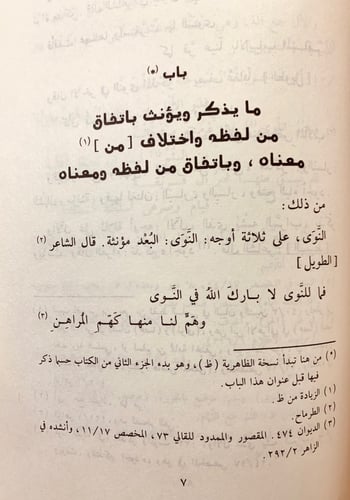 باب (*)
ما يذكر ويؤنث باتفاق
من لفظه واختلاف [ من ] (١)
معناه ، وباتفاق من لفظه ومعناه
من ذلك :
النَّوَى، على ثلاثة أوجه : النَّوَى: البُعْد مؤنثة. قال الشاعر (٢)
[ الطويل ]
فما للنَّوى لا باركَ اللهُ في النَّـوى
وهَمٍّ لنا منها كَهَمِّ المُراهِـنِ (٣)
(*) من هنا تبدأ نسخة الظاهرية (ظ) ، وهو بدء الجزء الثاني من الكتاب حسبما ذكر
فيها قبل عنوان هذا الباب.
(١) الزيادة من ظ.
(٢) الطرماح.
(٣) الديوان ٤٧٤. المقصور والممدود للقالي ٧٣، المخصص ١١/١٧، وأنشده في
الزاهر ٢٩٣/٢.
٧